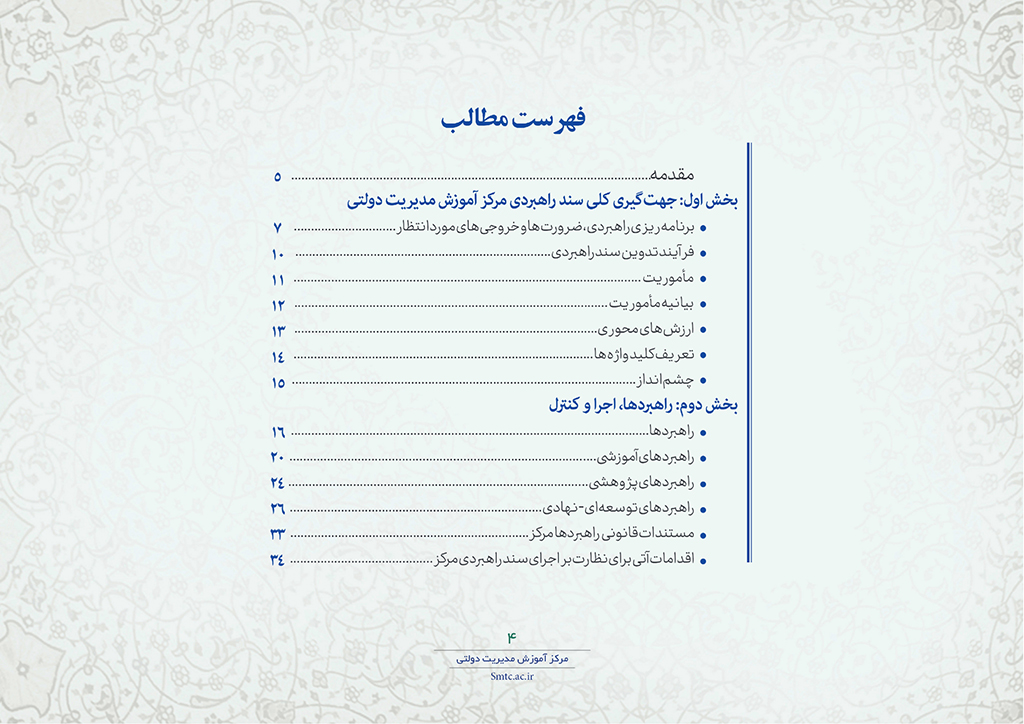 فهرست مطالب
مقدمه ........ ۵
بخش اول: جهت‌گیری کلی سند راهبردی مرکز آموزش مدیریت دولتی
• برنامه‌ریزی راهبردی، ضرورت‌ها و خروجی‌های مورد انتظار ........ ۷
• فرآیند تدوین سند راهبردی ........ ۱۰
• مأموریت ........ ۱۱
• بیانیه مأموریت ........ ۱۲
• ارزش‌های محوری ........ ۱۳
• تعریف کلیدواژه‌ها ........ ١٤
• چشم‌انداز ........ ۱۵
بخش دوم: راهبردها، اجرا و کنترل
• راهبردها ........ ١٦
• راهبردهای آموزشی ........ ۲۰
• راهبردهای پژوهشی ........ ٢٤
• راهبردهای توسعه‌ای - نهادی ........ ٢٦
• مستندات قانونی راهبردها مرکز ........ ۳۳
• اقدامات آتی برای نظارت بر اجرای سند راهبردی مرکز ........ ٣٤
۴
مرکز آموزش مدیریت دولتی
Smtc.ac.ir